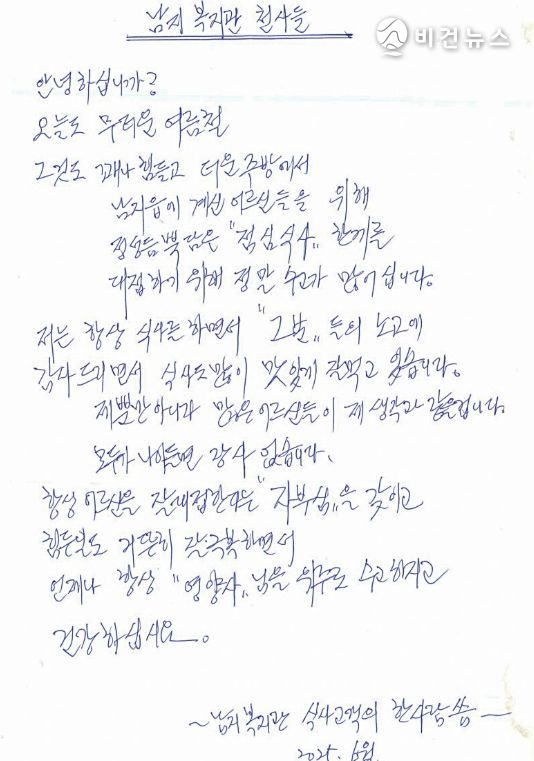 남지 복지관 천사들
비건뉴스
안녕하십니까?
오늘도 무더운 여름철
그것도 꽤나 힘들고 더운 주방에서
남지읍에 계신 어르신들을 위해
정성듬뿍 담은 "점심식사" 한끼를
대접하기 위해 정말 수고가 많으십니다.
저는 항상 식사를 하면서 "그분"들의 노고에
감사드리면서 식사도 많이 맛있게 잘먹고 있습니다.
제뿐만아니라 많은 어르신들이 제 생각과 같을겁니다.
모두가 나이들면 장사 없습니다.
항상 어르신을 잘대접한다는 "자부심"을 갖이고
힘든일도 거뜬히 잘극복하면서
언제나 항상 "영양사"님을 위주로 수고하시고
건강하십시요.
~남지복지관 식사고객의 한사람 씀~
2025. 6월